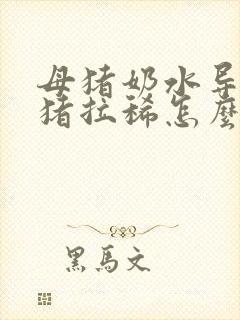 母猪奶水导
猪拉稀怎麽
黑馬文